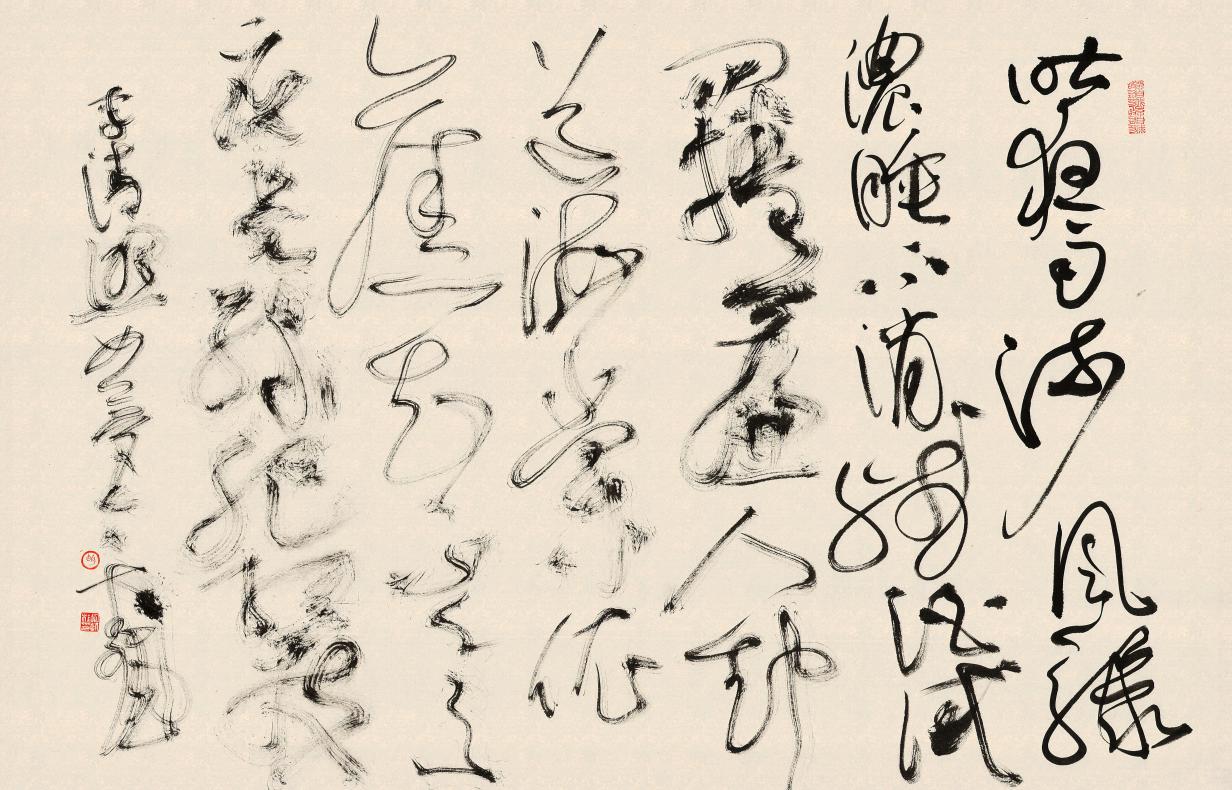 昨夜雨疏風驟
濃睡不消殘酒試
問捲簾人卻
道海棠依
舊知否知否
應是綠肥紅瘦
李清照如夢令